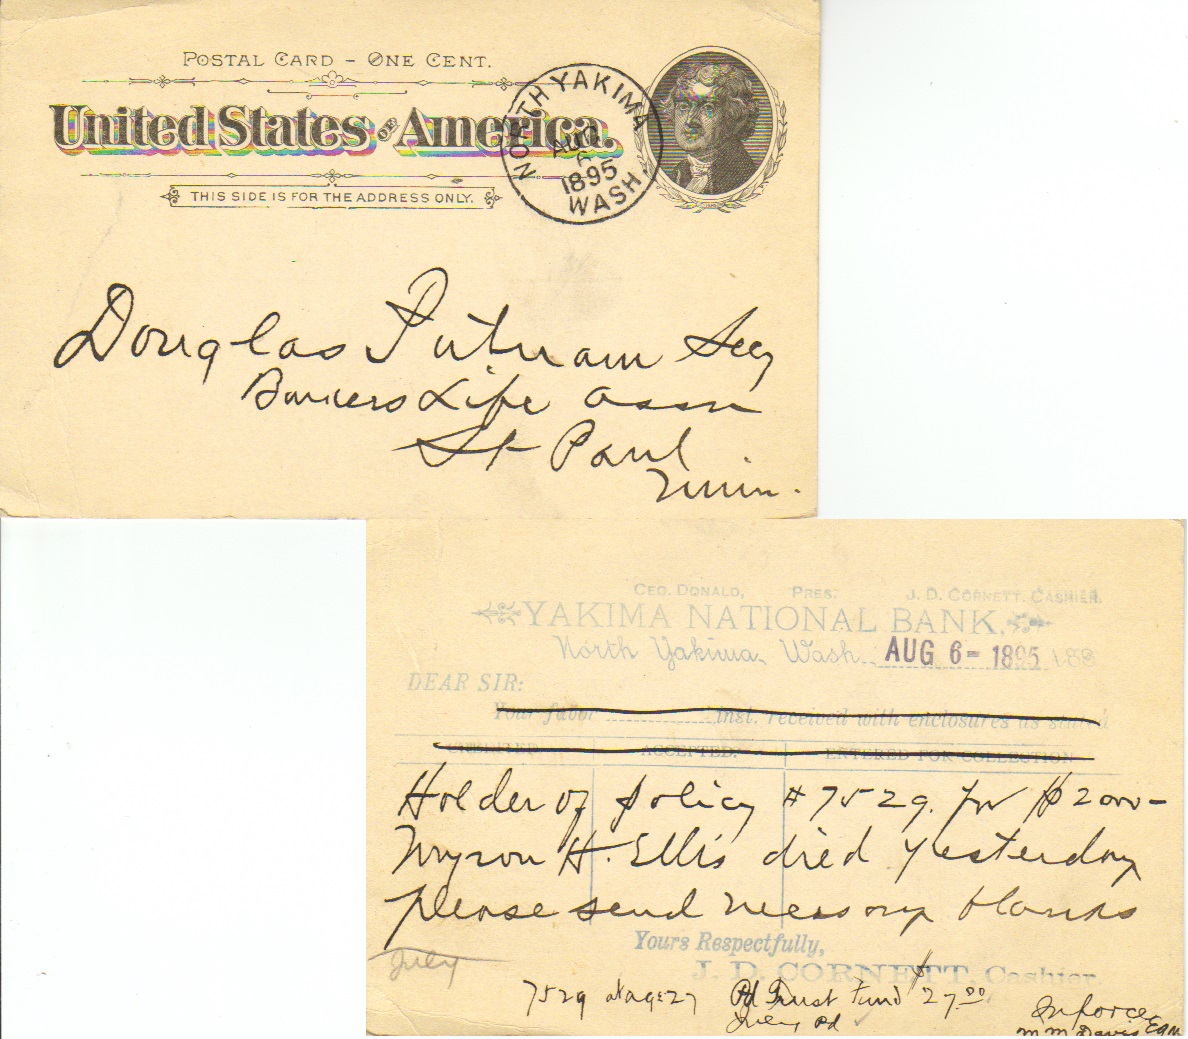 POSTAL CARD - ONE CENT.
United States of America.
THIS SIDE IS FOR THE ADDRESS ONLY.
NORTH YAKIMA
AUG
6
1895
WASH.
Douglas Putnam Secy
Bankers Life Assn
St Paul
Minn.
GEO. DONALD, PRES. J. D. CORNETT. CASHIER.
YAKIMA NATIONAL BANK.
North Yakima, Wash. AUG 6 - 1895 188
DEAR SIR:
Your favor inst. received with enclosures as stated
CREDITED ACCEPTED. ENTERED FOR COLLECTION
Holder of policy # 7529. for $2000-
Myron H. Ellis died yesterday
please send necessary blanks
Yours Respectfully,
J. D. CORNETT, Cashier.
July
7529 at age 27 Pd Trust Fund $27.00
July Pd
Inforce
M M Davis